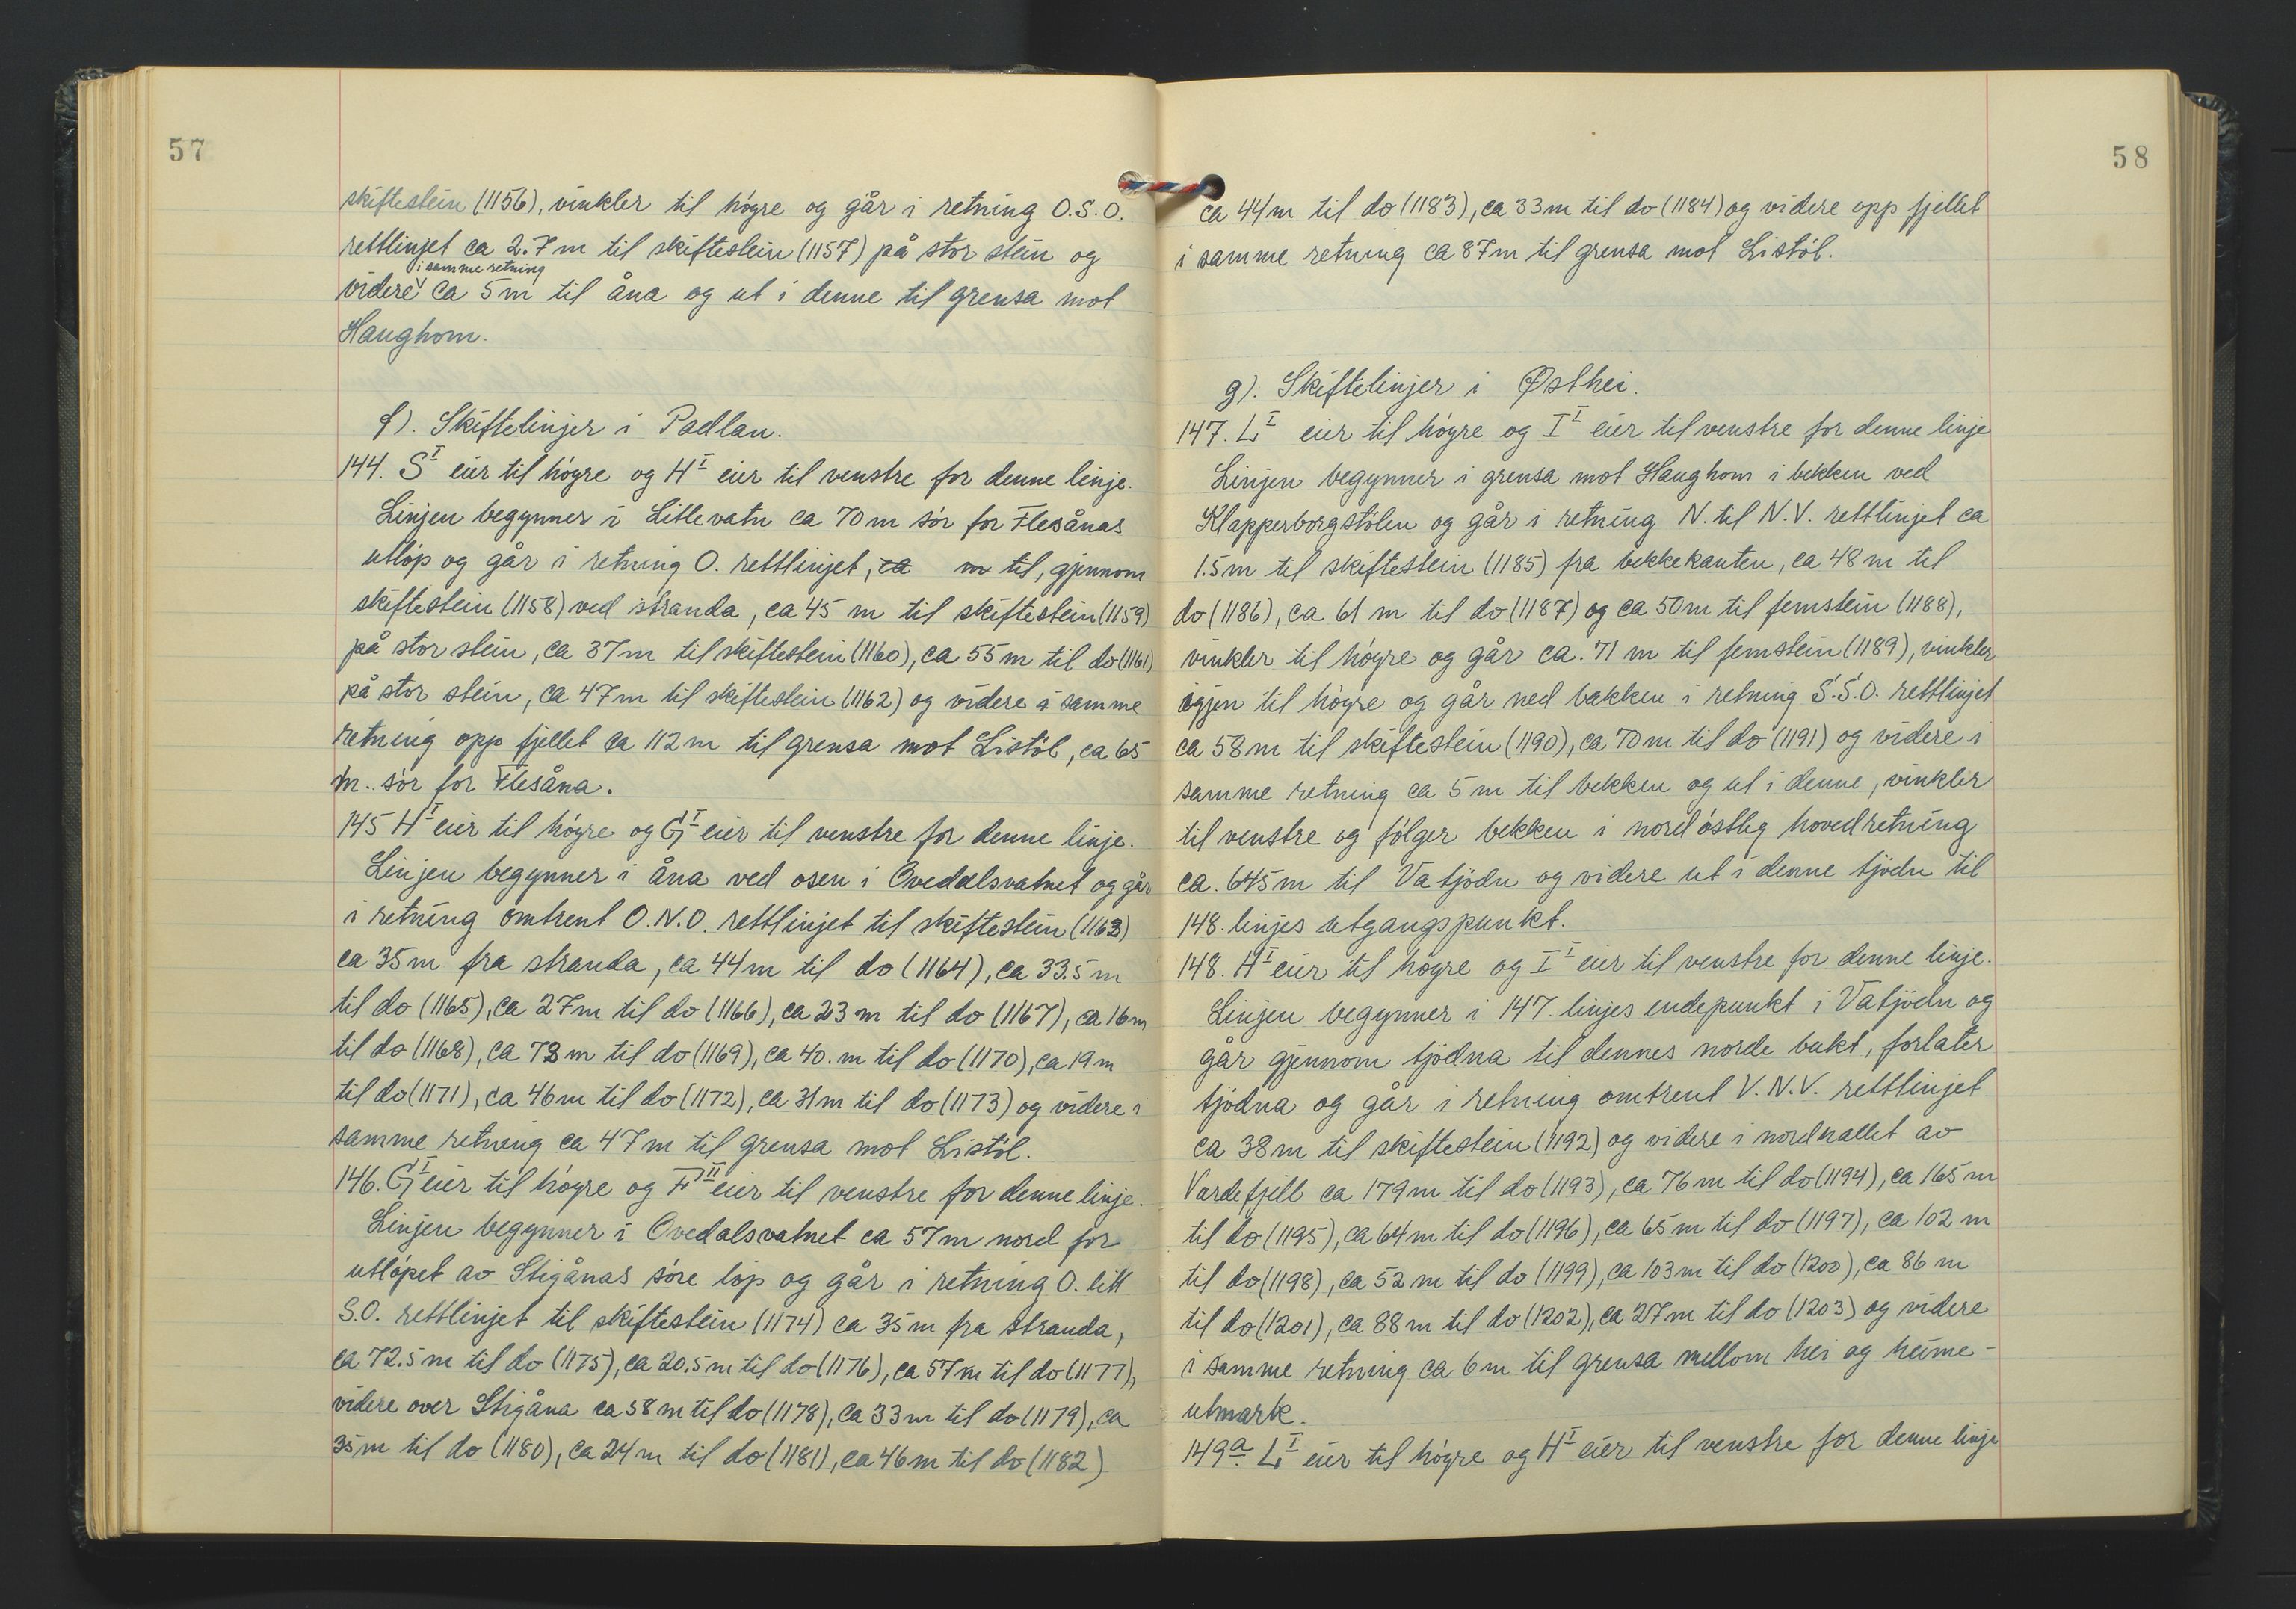 57
skiftestein (1156), vinkler til högre og går i retning O.S.O.
rettlinjet ca 2.7m til skiftestein (1157) på stor stein og
i samme retning
videre ca 5m til åna og ut i denne til grensa mot
Haughom.
f). Skiftelinjer i Padlan.
144. S I eier til högre og H I eier til venstre for denne linje.
Linjen begynner i Litlevatn ca 70m sör for Flesånas
utlöp og går i retning O. rettlinjet, ca m til, gjennom
skiftestein (1158) ved stranda, ca 45 m til skiftestein (1159)
på stor stein, ca 37m til skiftestein (1160), ca 55m til do (1161)
på stor stein, ca 47m til skiftestein (1162) og videre i samme
retning opp fjellet ca 112m til grensa mot Listöl, ca 65
m. sör for Flesåna.
145 H I eier til högre og G I eier til venstre for denne linje.
Linjen begynner i åna ved osen i Ovedalsvatnet og går
i retning omtrent O.N.O. rettlinjet til skiftestein (1163)
ca 35m fra stranda, ca 44m til do (1164), ca 33.5m
til do (1165), ca 27m til do (1166), ca 23 m til do (1167), ca 16m
til do (1168), ca 73 m til do (1169), ca 40. m til do (1170), ca 19m
til do (1171), ca 46m til do (1172), ca 31m til do (1173) og videre i
samme retning ca 47m til grensa mot Listöl.
146. G I eier til högre og F II eier til venstre for denne linje.
Linjen begynner i Ovedalsvatnet ca 57m nord for
utlöpet av Stigånas söre löp og går i retning O. litt
S.O. rettlinjet til skiftestein (1174) ca 35m fra stranda,
ca 72.5m til do (1175), ca 20.5m til do (1176), ca 57m til do (1177),
videre over Stigåna ca 58m til do (1178), ca 33m til do (1179), ca
35m til do (1180), ca 24m til do (1181), ca 46m til do (1182)
58
ca 44m til do (1183), ca 33m til do (1184) og videre opp fjellet
i samme retning ca 87m til grensa mot Listöl.
g). Skiftelinjer i Østhei.
147. L I eier til högre og I I eier til venstre for denne linje
Linjen begynner i grensa mot Haughom i bekken ved
Klapperborgstölen og går i retning N. til N.V. rettlinjet ca
1.5m til skiftestein (1185) fra bekkekanten, ca 48m til
do (1186), ca 61 m til do (1187) og ca 50m til femstein (1188),
vinkler til högre og går ca. 71 m til femstein (1189), vinkler
igjen til högre og går ned bakken i retning S.S.O. rettlinjet
ca 58m til skiftestein (1190), ca 70m til do (1191) og videre i
samme retning ca 5m til bekken og ut i denne, vinkler
til venstre og fölger bekken i nordöstlig hovedretning
ca. 645m til Vatjödn og videre ut i denne tjödn til
148. linjes utgangspunkt.
148. H I eier til högre og I I eier til venstre for denne linje.
Linjen begynner i 147. linjes endepunkt i Vatjödn og
går gjennom tjödna til dennes norde bukt, forlater
tjödna og går i retning omtrent V.N.V. rettlinjet
ca 38m til skiftestein (1192) og videre i nordhallet av
Vardefjell ca 179m til do (1193), ca 76m til do (1194), ca 165m
til do (1195), ca 64m til do (1196), ca 65m til do (1197), ca 102 m
til do (1198), ca 52 m til do (1199), ca 103m til do (1200), ca 86 m
til do (1201), ca 88m til do (1202), ca 27m til do (1203) og videre
i samme retning ca 6m til grensa mellom hei og heime-
utmark.
149a. L I eier til högre og H I eier til venstre for denne linje